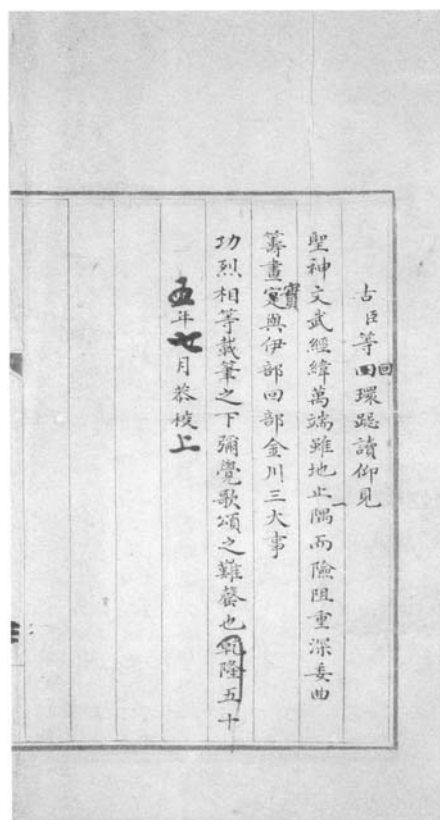 古臣等囬回環跽讀仰見
聖神文武經緯萬端雖地止一隅而險阻重深委曲
籌畫寔實與伊部囬部金川三大事
功烈相等載筆之下彌覺歌頌之難罄也乾隆五十
五年七月恭校上